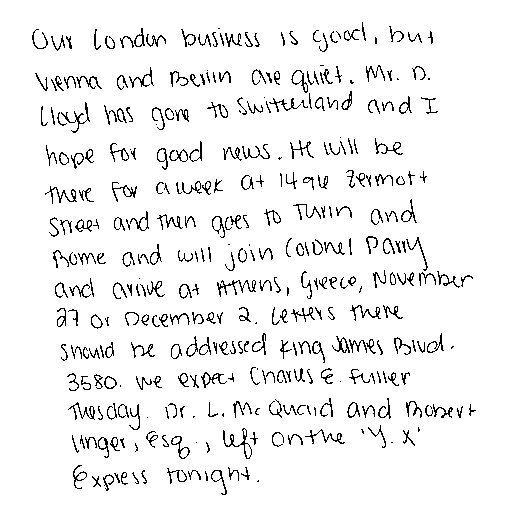 Our London business is good, but
Vienna and Berlin are quiet. Mr. D.
Lloyd has gone to Switzerland and I
hope for good news. He will be
there for a week at 1496 Zermott
Street and then goes to Turin and
Rome and will join Colonel Parry
and arrive at Athens, Greece, November
27 or December 2. Letters there
should be addressed King James Blvd.
3580. We expect Charles E. Fuller
Tuesday. Dr. L. McQuaid and Robert
Unger, Esq., left on the 'Y.X'
Express tonight.